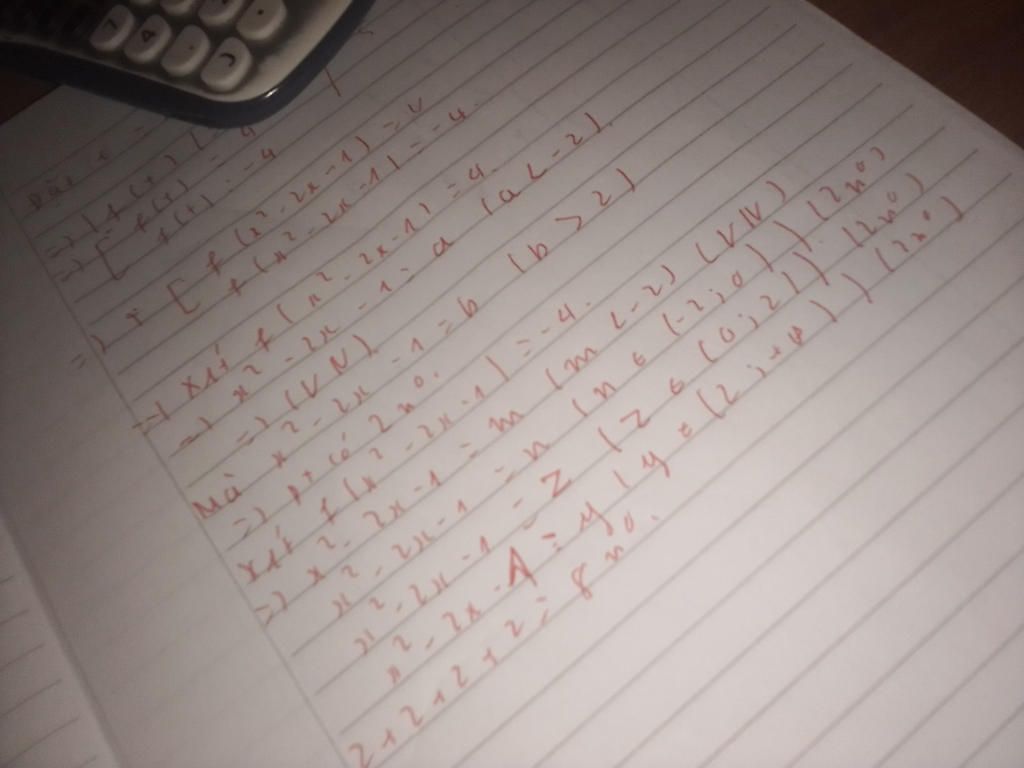 Đặt t =
=> |f(t)| = 4
=> [ f(t) = 4
f(t) = -4
=> + [ f(x² - 2x - 1) = 4
f(x² - 2x - 1) = -4.
Xét f(x² - 2x - 1) = 4.
=> x² - 2x - 1 = a (a < -2).
=> (VN).
Mà x² - 2x - 1 = b (b > 2)
=> pt có 2 no.
Xét f(x² - 2x - 1) = -4.
=> x² - 2x - 1 = m (m < -2) (VN)
x² - 2x - 1 = n (n ∈ (-2; 0)) (2no)
x² - 2x - 1 = z (z ∈ (0; 2)). (2no)
x² - 2x - 1 = y (y ∈ (2; +∞)) (2no)
2 + 2 + 2 + 2 = 8 no.